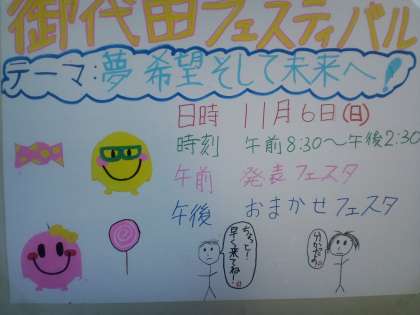 御代田フェスティバル
テーマ:夢 希望 そして未来へ!
日時 11月6日(日)
時刻 午前8:30〜午後2:30
午前 発表フェスタ
午後 おまかせフェスタ
ちょっと!
早く来てね!